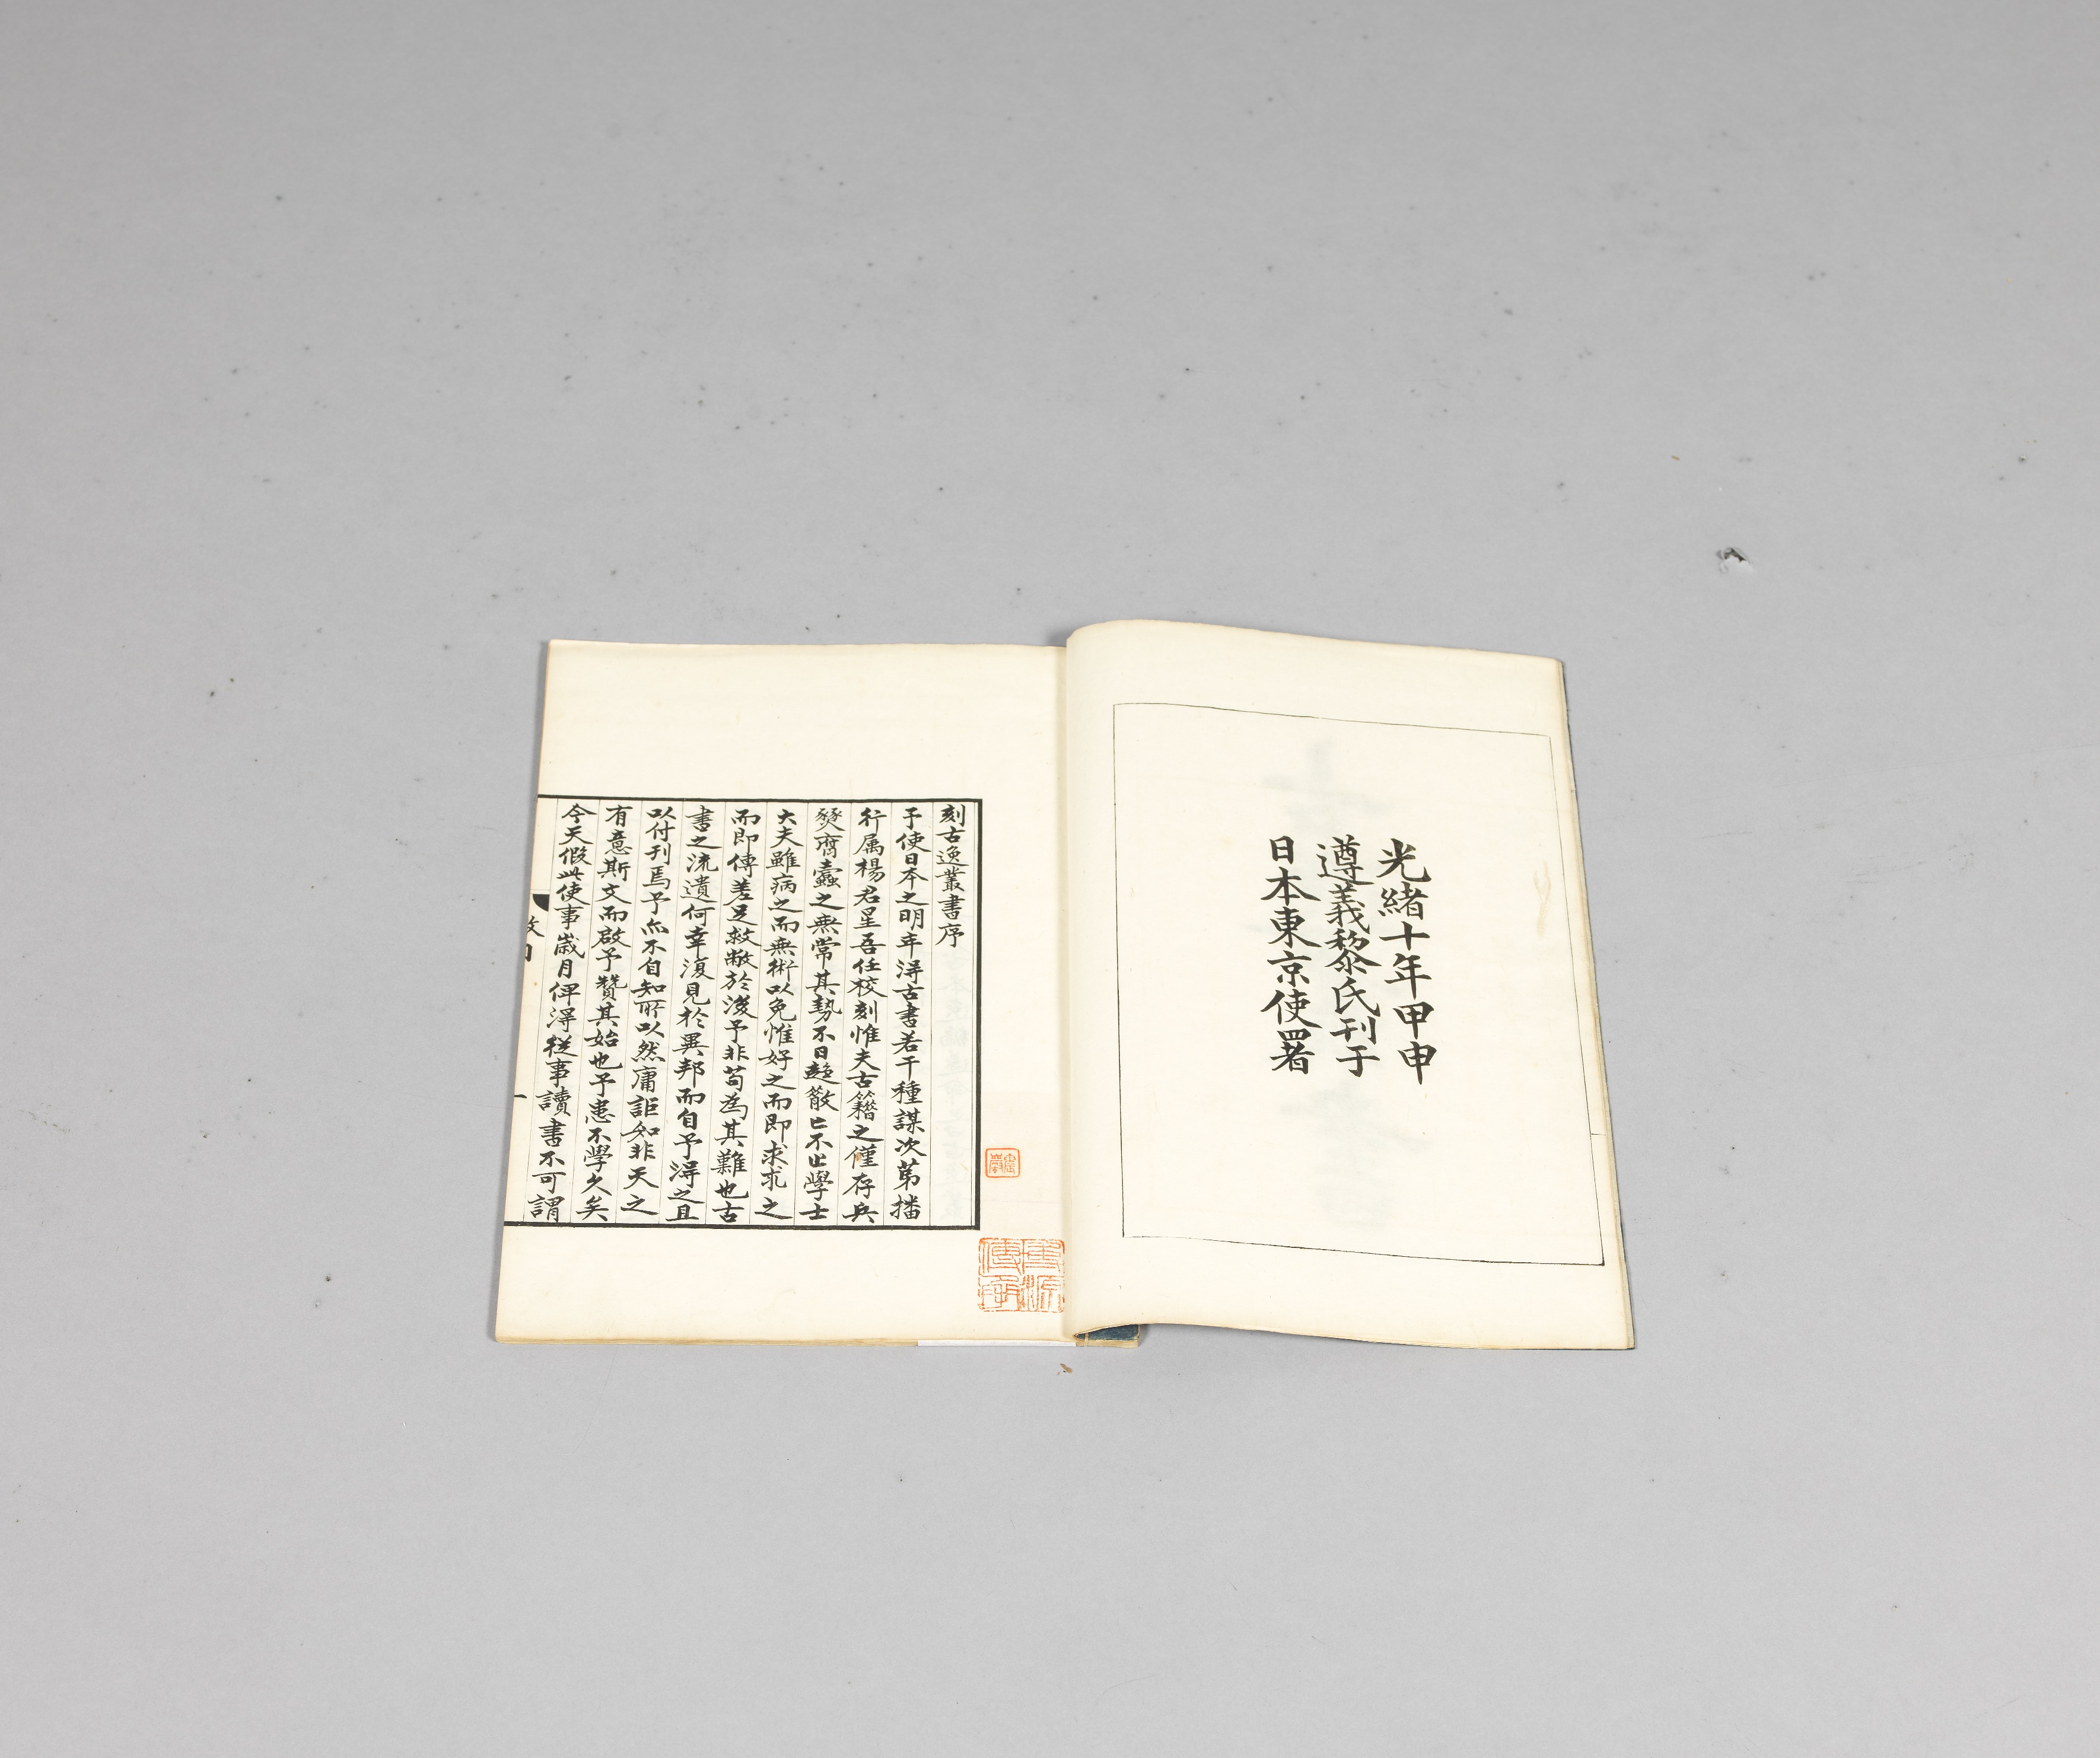 光緒十年甲申
遵義黎氏刊于
日本東京使署
刻古逸叢書序
予使日本之明年得古書若干種謀次苐播
行属楊君星吾任校刻惟夫古籍之僅存兵
燹齎蠹之無常其勢不日趍散亡不止學士
大夫雖病之而無術以免惟好之而即求求之
而即傳差足救敝於後予非苟為其難也古
書之流遺何幸復見於異邦而自予得之且
以付刊焉予亦不自知所以然庸詎知非天之
有意斯文而啟予贊其始也予恚不學久矣
今天假此使事歲月俾得從事讀書不可謂